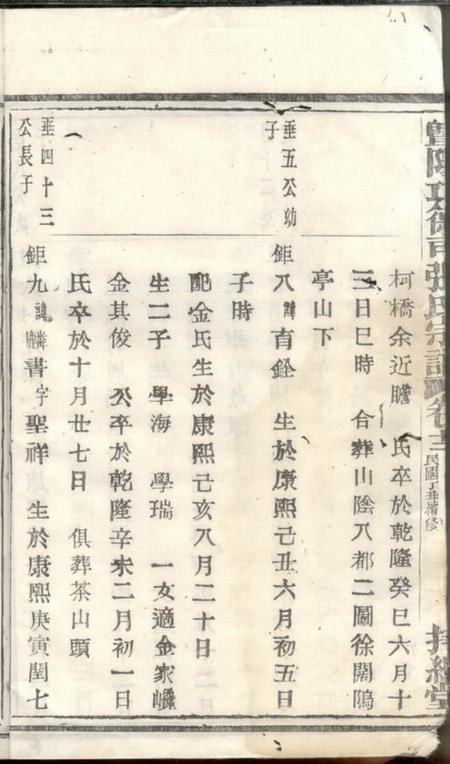 暨陽孝義張氏宗譜卷十三民國丁亥續修
柯橋余近瞻　氏卒於乾隆癸巳六月十
三日巳時　合葬山陰八都二圖徐闊鴿
亭山下
垂五公幼
子
鉅八諱有銓　生於康熙己丑六月初五日
子時
配金氏生於康熙己亥八月二十日
生二子　學海　學瑞　一女適金家
金其俊　公卒於乾隆辛未二月初一日
氏卒於十月廿七日　俱葬茶山頭
垂四十三
公長子
鉅九諱麟書字聖祥　生於康熙庚寅閏七